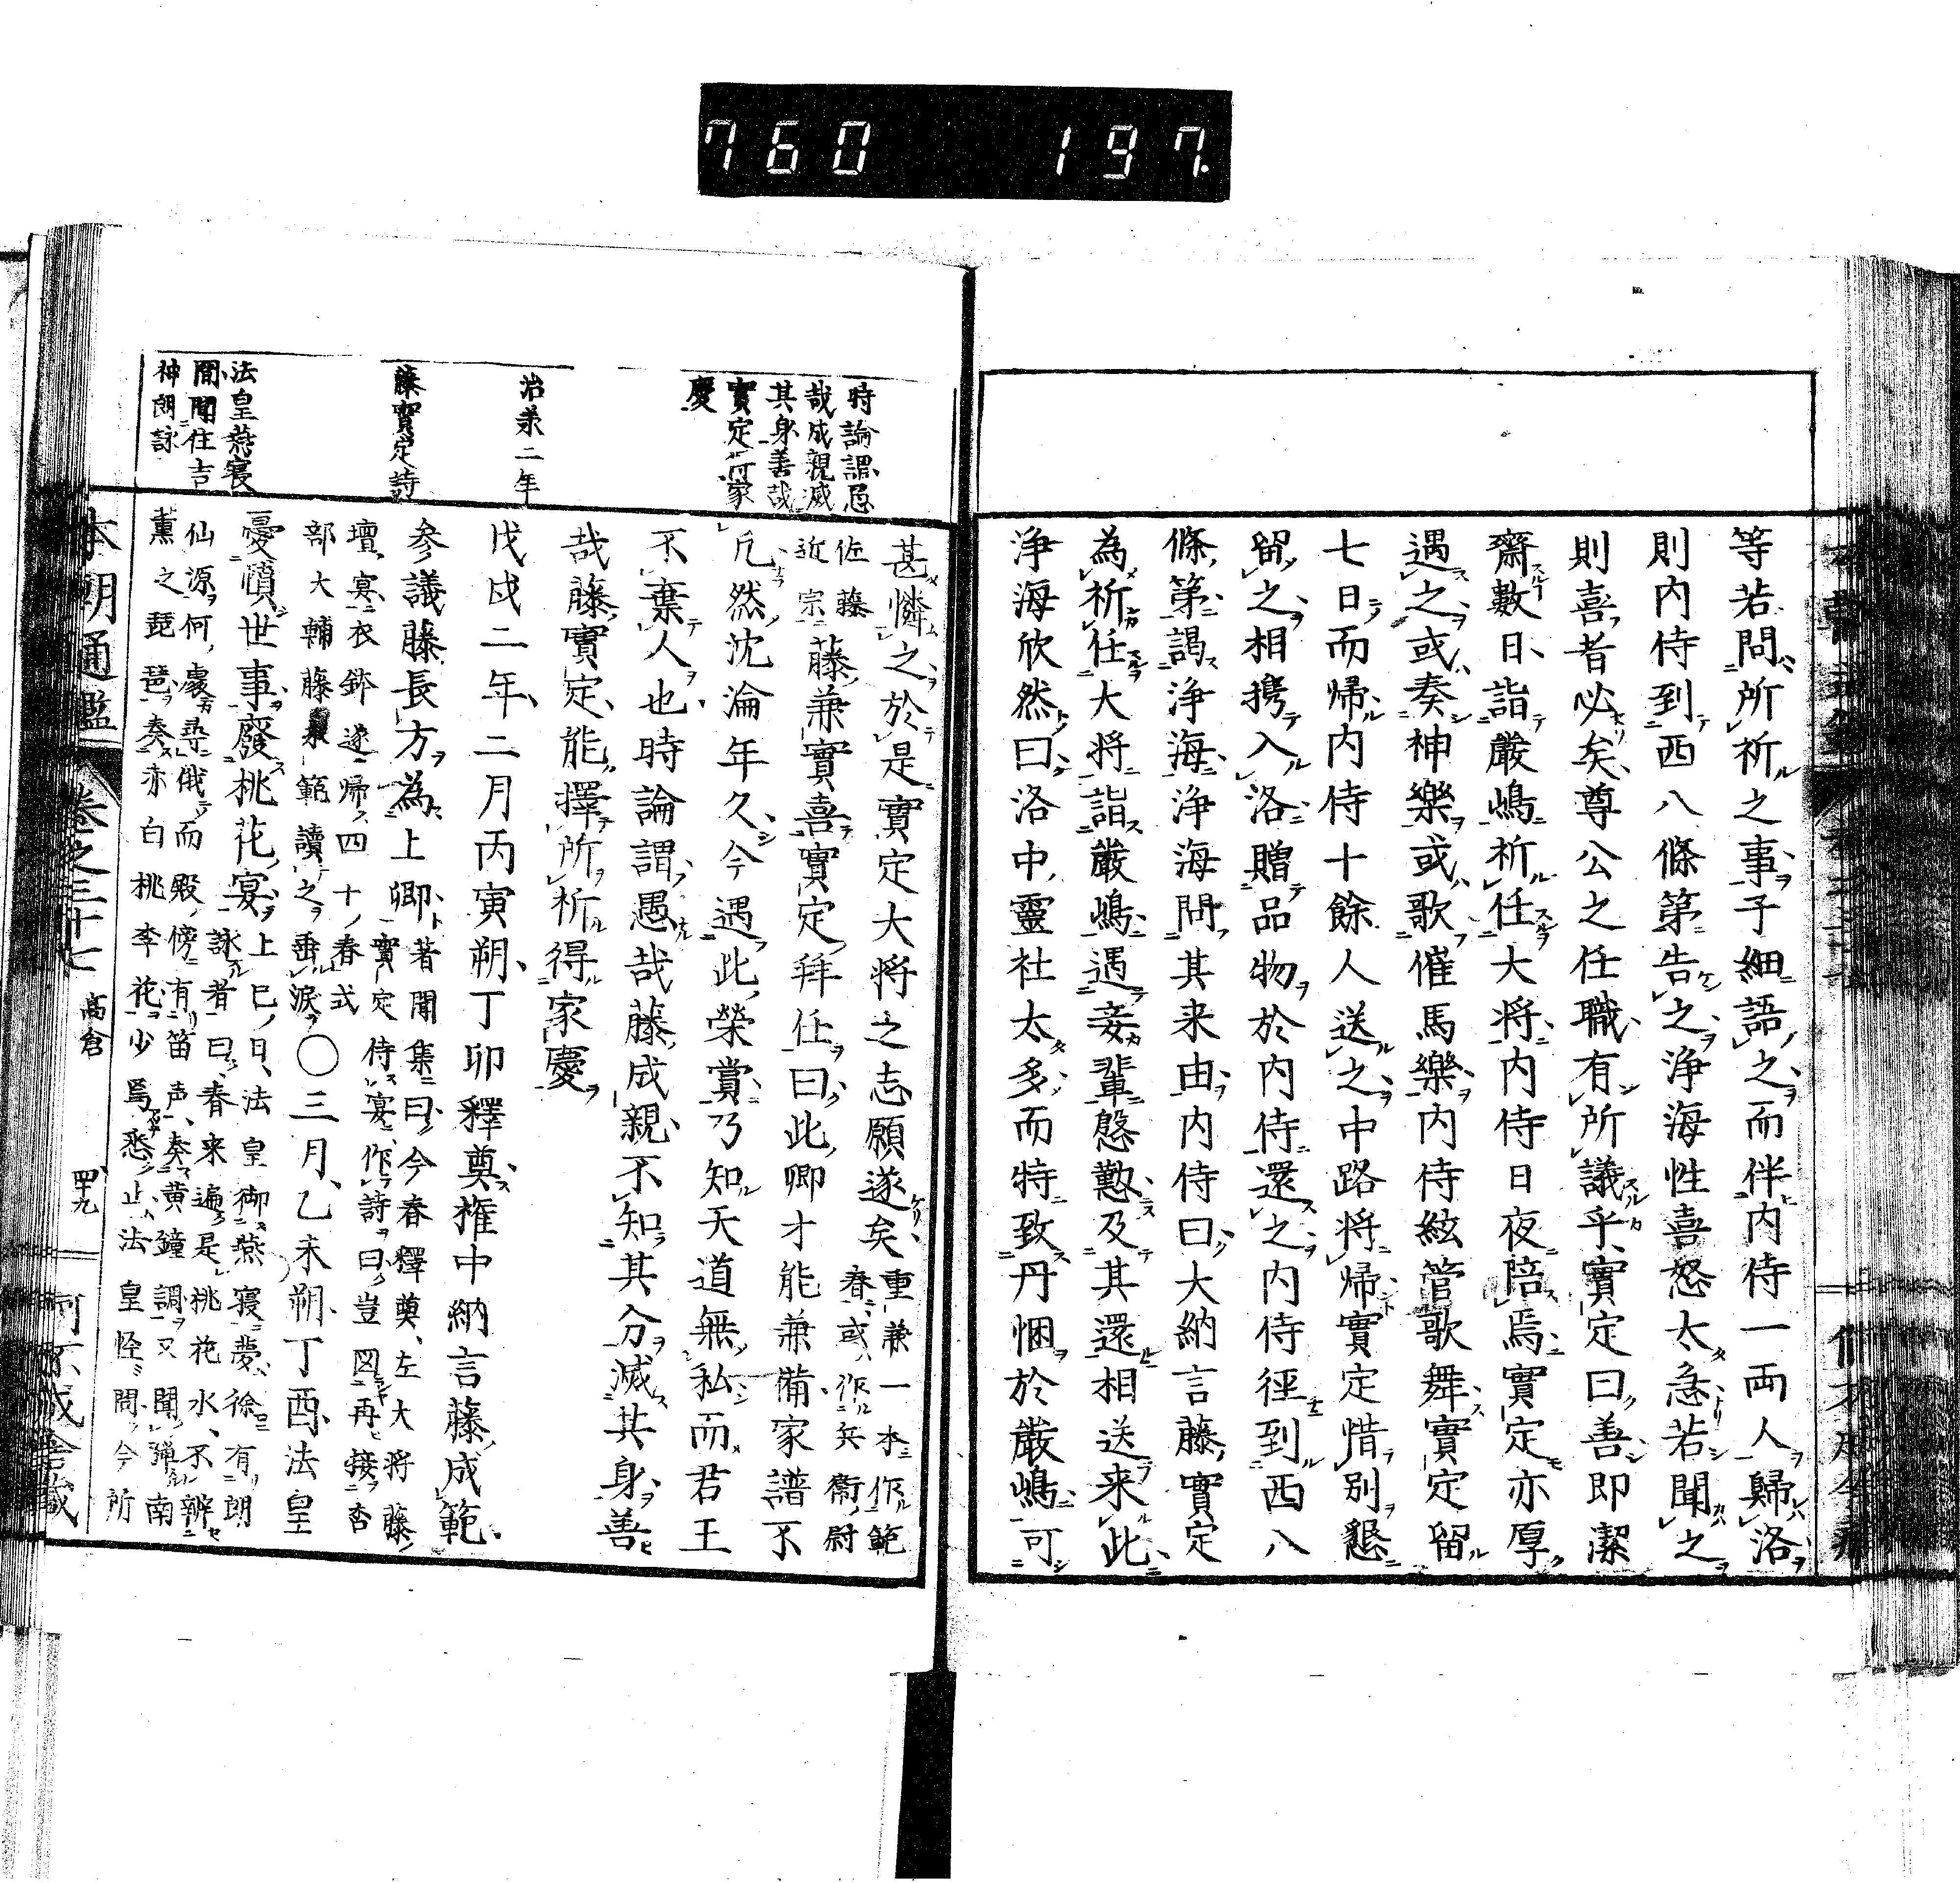 760 197.
等若問所祈之事子細語之而伴内侍一両人歸洛
則内侍到西八條第告之浄海性喜怒太急若聞之
則喜者必矣尊公之任職有所議乎實定曰善即潔
齋數日詣嚴嶋祈任大将内侍日夜陪焉實定亦厚
遇之或奏神樂或歌催馬樂内侍絃管歌舞實定留
七日而帰内侍十餘人送之中路将帰實定惜別懇
留之相携入洛贈品物於内侍還之内侍徑到西八
條第謁浄海浄海問其来由内侍曰大納言藤實定
為祈任大将詣嚴嶋遇妾輩慇懃及其還相送来此
浄海欣然曰洛中靈社太多而特致丹悃於嚴嶋可
時論謂愚
哉成親滅
其身善哉
實定得家
慶
治承二年
藤實定詩
法皇燕寝
間聞住吉
神朗詠
甚憐之於是實定大将之志願遂矣重兼一本作範
春或作兵衞尉
佐藤
近宗藤兼實喜實定拜任曰此卿才能兼備家譜不
凡然沈淪年久今遇此榮賞乃知天道無私而君王
不棄人也時論謂愚哉藤成親不知其分滅其身善
哉藤實定能擇所祈得家慶
戊戌二年二月丙寅朔丁卯釋奠權中納言藤成範
参議藤長方為上卿著聞集曰今春釋奠左大将藤
實定侍宴作詩曰豈図再接杏
壇宴衣鉢遂帰四十春式
部大輔藤永範讀之垂涙〇三月乙未朔丁酉法皇
憂憤世事廢桃花宴上巳日法皇御燕寝夢徐有朗
詠者曰春来遍是桃花水不辨
仙源何處尋俄而殿傍有笛声奏黄鐘調又聞弾南
薫之琵琶奏赤白桃李花少焉悉止法皇怪問今所
本朝通鑑 卷之三十七 高倉 四十九